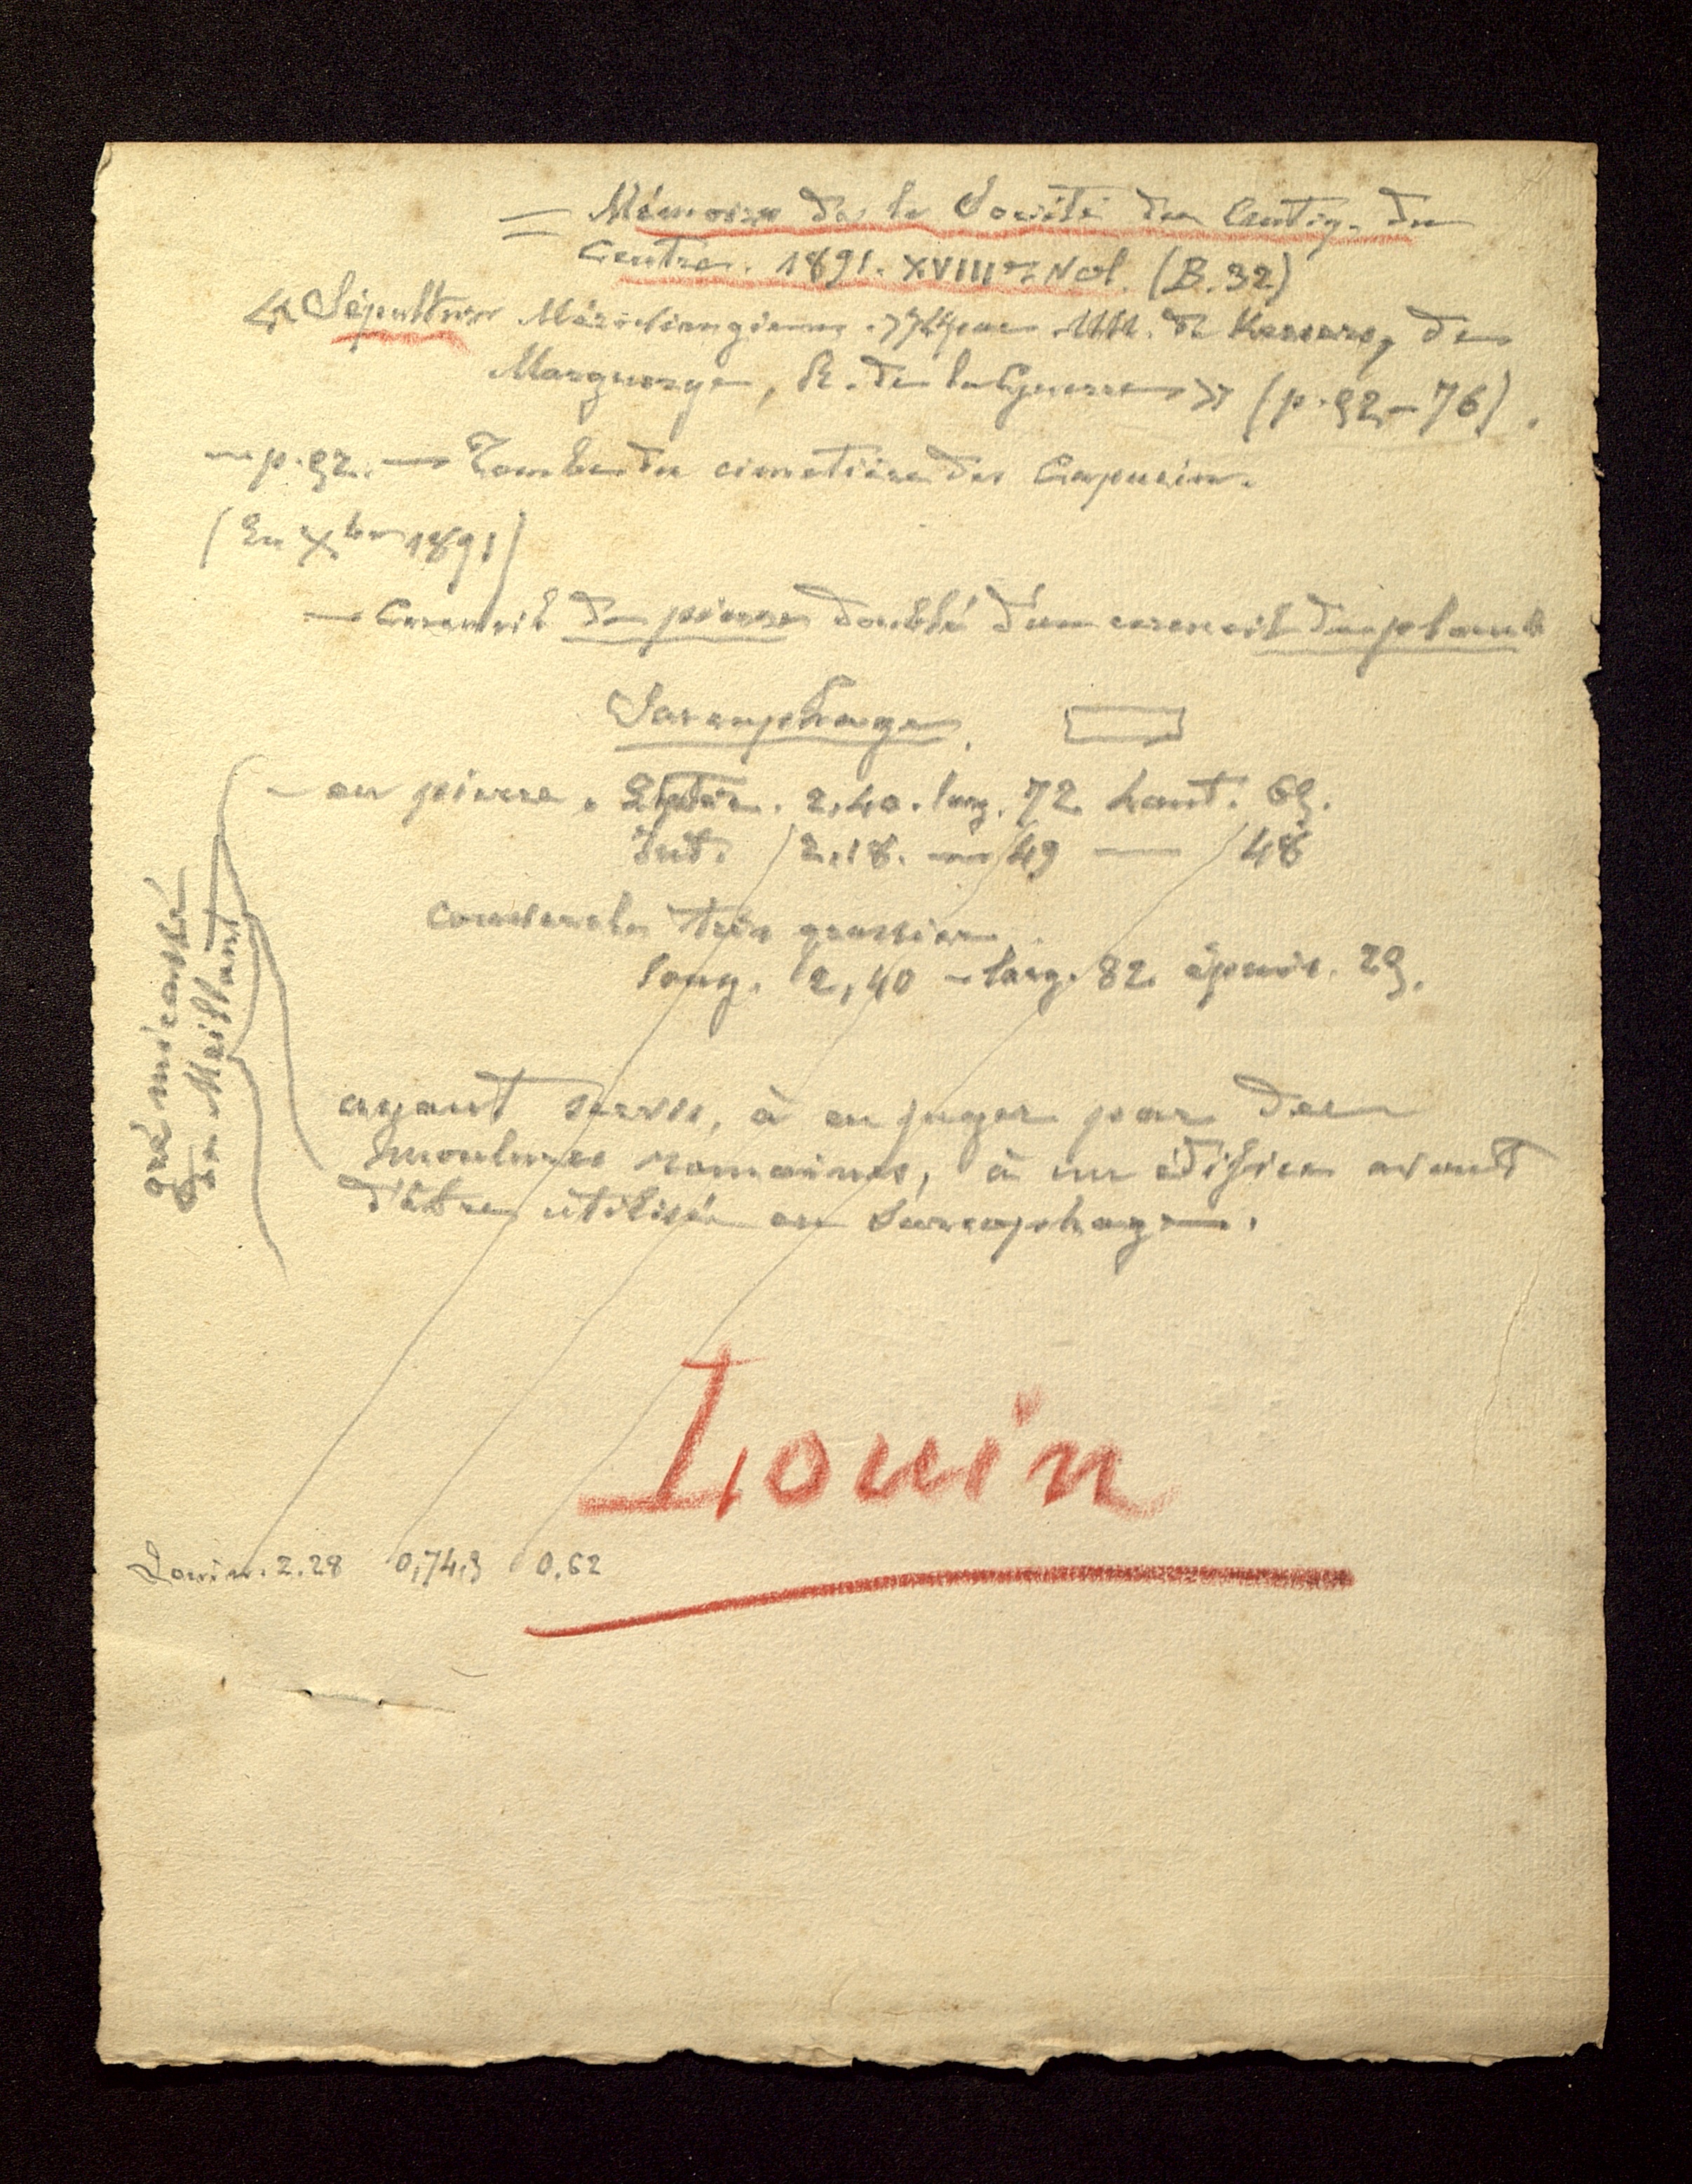 = Mémoires de la Société des Antiq. du
Centre. 1891. XVIIIe Vol. (B.32)
« Sépulture Mérovingienne » par MM. de Kersers, de
Marguerye, R. de la Guerre » (p.92-76).
— p.92. — Tombe du cimetière des Capucins.
(En Xbre 1891)
— Cercueil de pierre doublé d'un cercueil de plomb
Sarcophage.
— en pierre. Extér. 2,40. larg. 72 haut. 69.
Int. 2,18. — 49 — 48
couvercle très grossier.
Long. 2,40 — larg. 82 épais. 29.
grés micacé
de Meillant
ayant servi, à en juger par des
moulures romaines, à un édifice avant
d'être utilisé en sarcophage.
Louin
Louin. 2.28 0,74,5 0.62